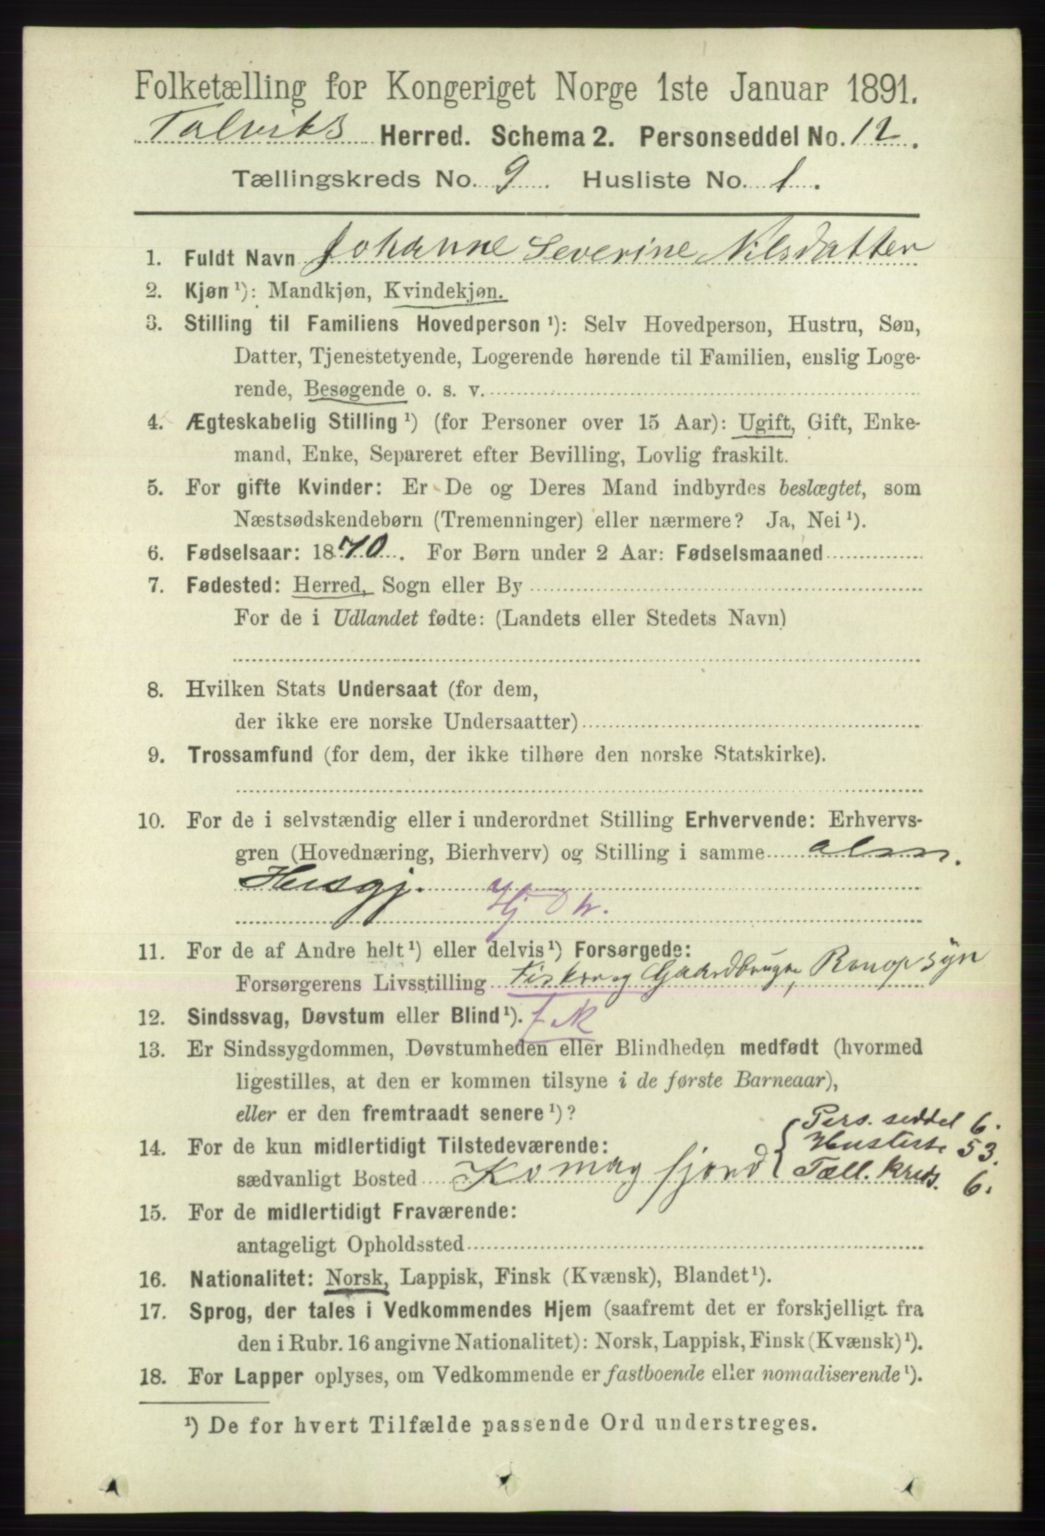 Folketælling for Kongeriget Norge 1ste Januar 1891.
Talviks Herred. Schema 2. Personseddel No. 12.
Tællingskreds No. 9 Husliste No. 1.
1. Fuldt Navn Johanne Severine Nilsdatter
2. Kjøn ¹): Mandkjøn, Kvindekjøn.
3. Stilling til Familiens Hovedperson ¹): Selv Hovedperson, Hustru, Søn,
Datter, Tjenestetyende, Logerende hørende til Familien, enslig Loge-
rende, Besøgende o. s. v.
4. Ægteskabelig Stilling ¹) (for Personer over 15 Aar): Ugift, Gift, Enke-
mand, Enke, Separeret efter Bevilling, Lovlig fraskilt.
5. For gifte Kvinder: Er De og Deres Mand indbyrdes beslægtet, som
Næstsødskendebørn (Tremenninger) eller nærmere? Ja, Nei ¹).
6. Fødselsaar: 1870. For Børn under 2 Aar: Fødselsmaaned
7. Fødested: Herred, Sogn eller By
For de i Udlandet fødte: (Landets eller Stedets Navn)
8. Hvilken Stats Undersaat (for dem,
der ikke ere norske Undersaatter)
9. Trossamfund (for dem, der ikke tilhøre den norske Statskirke).
10. For de i selvstændig eller i underordnet Stilling Erhvervende: Erhvervs-
gren (Hovednæring, Bierhverv) og Stilling i samme alm.
Husgj. Hj
11. For de af Andre helt ¹) eller delvis ¹) Forsørgede:
Forsørgerens Livsstilling Fisker og Gaardbruger,
12. Sindssvag, Døvstum eller Blind ¹).
13. Er Sindssygdommen, Døvstumheden eller Blindheden medfødt (hvormed
ligestilles, at den er kommen tilsyne i de første Barneaar),
eller er den fremtraadt senere ¹)?
Pers. seddel 6.
14. For de kun midlertidigt Tilstedeværende: Husliste 53.
sædvanligt Bosted Komagfjord { Tæll. kreds. 6.
15. For de midlertidigt Fraværende:
antageligt Opholdssted
16. Nationalitet: Norsk, Lappisk, Finsk (Kvænsk), Blandet ¹).
17. Sprog, der tales i Vedkommendes Hjem (saafremt det er forskjelligt fra
den i Rubr. 16 angivne Nationalitet): Norsk, Lappisk, Finsk (Kvænsk) ¹).
18. For Lapper oplyses, om Vedkommende er fastboende eller nomadiserende ¹).
¹) De for hvert Tilfælde passende Ord understreges.